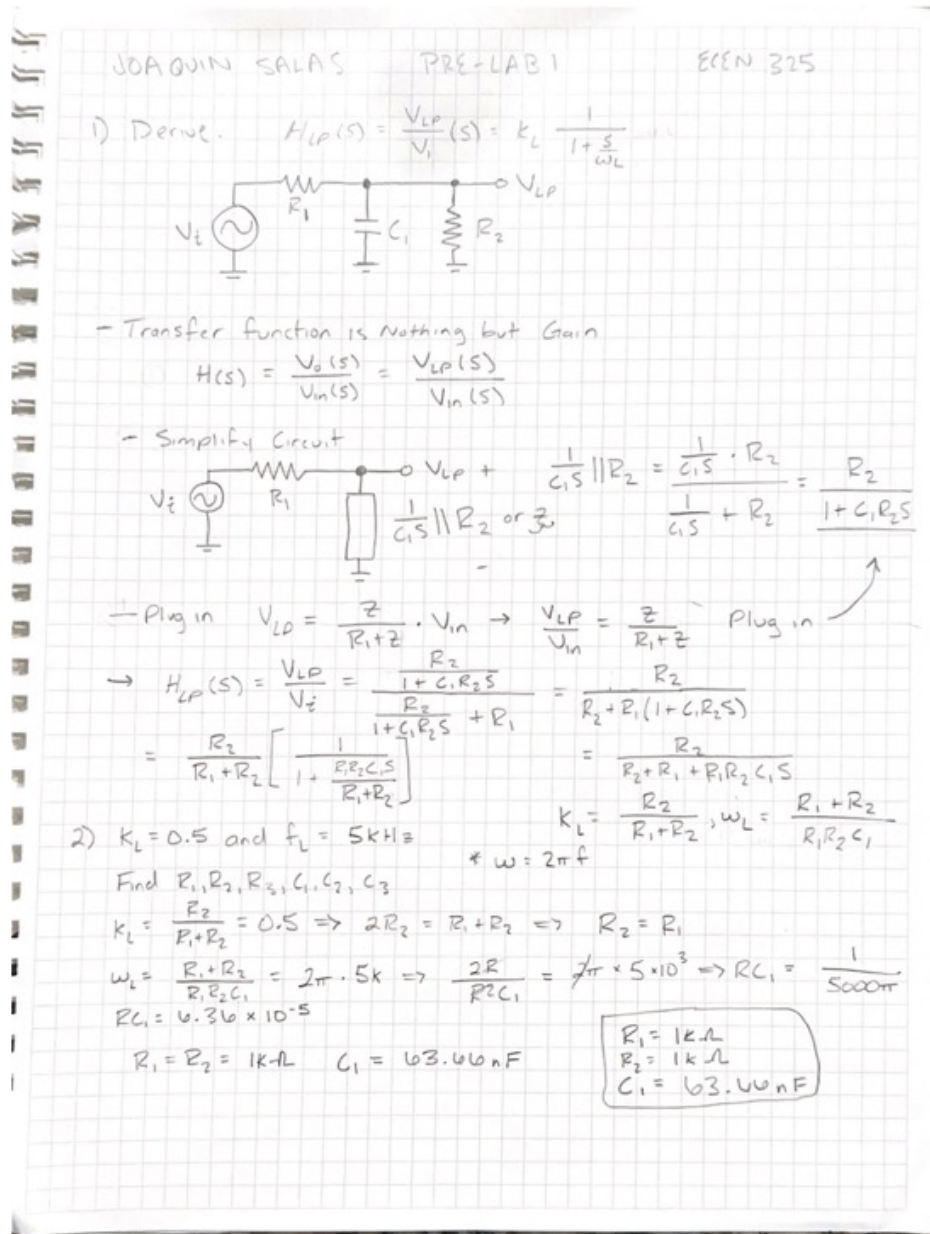 JOAQUIN SALAS PRE-LAB 1 ECEN 325
1) Derive. H_LP(s) = V_LP/V_i (s) = k_L 1/(1 + s/ω_L)
R_1 V_LP
V_i C_1 R_2
- Transfer function is Nothing but Gain
H(s) = V_o(s)/V_in(s) = V_LP(s)/V_in(s)
- Simplify Circuit
V_i R_1 V_LP + 1/(C_1S) || R_2 = (1/(C_1S) · R_2)/(1/(C_1S) + R_2) = R_2/(1 + C_1R_2S)
1/(C_1S) || R_2 or Z
-
— Plug in V_LP = Z/(R_1+Z) · V_in → V_LP/V_in = Z/(R_1+Z) Plug in
→ H_LP(S) = V_LP/V_i = (R_2/(1 + C_1R_2S))/(R_2/(1 + C_1R_2S) + R_1) = R_2/(R_2 + R_1(1 + C_1R_2S))
= R_2/(R_1+R_2) [1/(1 + R_1R_2C_1S/(R_1+R_2))] = R_2/(R_2 + R_1 + R_1R_2C_1S)
K_L = R_2/(R_1+R_2), ω_L = (R_1+R_2)/(R_1R_2C_1)
2) K_L = 0.5 and f_L = 5kHz * ω = 2πf
Find R_1, R_2, R_3, C_1, C_2, C_3
K_L = R_2/(R_1+R_2) = 0.5 => 2R_2 = R_1+R_2 => R_2 = R_1
ω_L = (R_1+R_2)/(R_1R_2C_1) = 2π · 5k => 2R/(R²C_1) = 2π × 5×10³ => RC_1 = 1/(5000π)
RC_1 = 6.36 × 10^-5
R_1 = R_2 = 1kΩ C_1 = 63.66nF
R_1 = 1kΩ
R_2 = 1kΩ
C_1 = 63.66nF